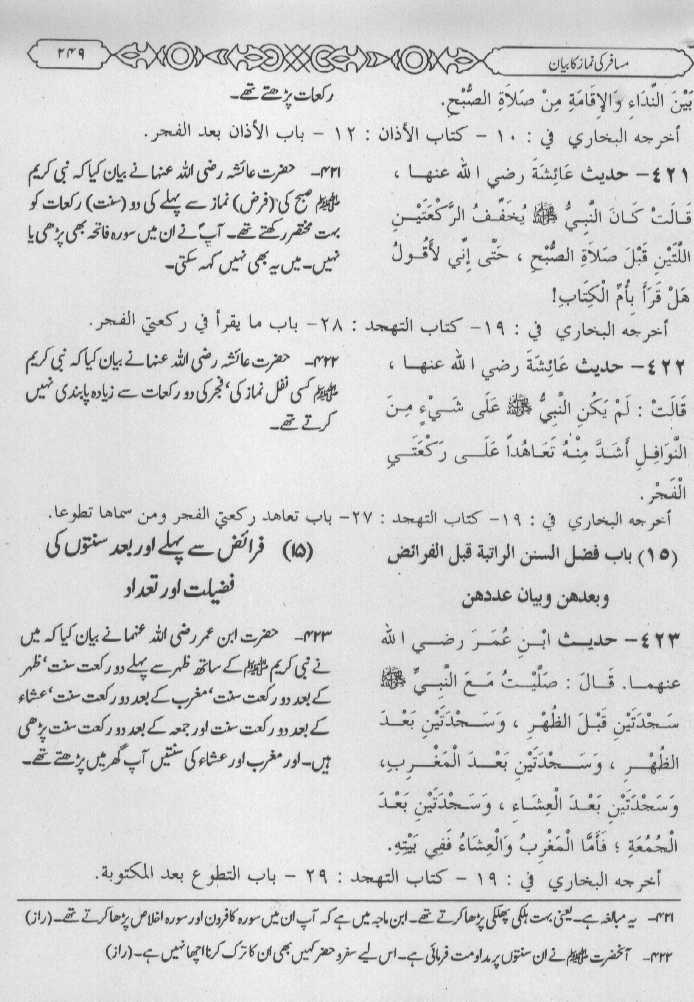 مسافر کی نماز کا بیان
۲۴۹
بَيْنَ النِّدَاءِ وَالإِقَامَةِ مِنْ صَلَاةِ الصُّبْحِ.
رکعات پڑھتے تھے۔
أخرجه البخاري في : ١٠ - كتاب الأذان : ١٢ - باب الأذان بعد الفجر.
٤٢١- حديث عَائِشَةَ رضي الله عنها ،
قَالَتْ كَانَ النَّبِيُّ ﷺ يُخَفِّفُ الرَّكْعَتَيْنِ
اللَّتَيْنِ قَبْلَ صَلَاةِ الصُّبْحِ ، حَتَّى إِنِّي لأَقُولُ
هَلْ قَرَأَ بِأُمِّ الْكِتَابِ!
۴۲۱- حضرت عائشہ رضی اللہ عنہا نے بیان کیا کہ نبی کریم
ﷺ صبح کی (فرض) نماز سے پہلے کی دو (سنت) رکعات کو
بہت مختصر رکھتے تھے۔ آپؐ نے ان میں سورہ فاتحہ بھی پڑھی یا
نہیں۔ میں یہ بھی نہیں کہہ سکتی۔
أخرجه البخاري في : ١٩- كتاب التهجد : ٢٨- باب ما يقرأ في ركعتي الفجر.
٤٢٢- حديث عَائِشَةَ رضي الله عنها ،
قَالَتْ : لَمْ يَكُنِ النَّبِيُّ ﷺ عَلَى شَيْءٍ مِنَ
النَّوَافِلِ أَشَدَّ مِنْهُ تَعَاهُداً عَلَى رَكْعَتَيِ
الْفَجْرِ.
۴۲۲- حضرت عائشہ رضی اللہ عنہا نے بیان کیا کہ نبی کریم
ﷺ کسی نفل نماز کی‘ فجر کی دو رکعات سے زیادہ پابندی نہیں
کرتے تھے۔
أخرجه البخاري في : ١٩- كتاب التهجد : ٢٧- باب تعاهد ركعتي الفجر ومن سماها تطوعا.
(١٥) باب فضل السنن الراتبة قبل الفرائض
وبعدهن وبيان عددهن
(۱۵) فرائض سے پہلے اور بعد سنتوں کی
فضیلت اور تعداد
٤٢٣- حديث ابْنِ عُمَرَ رضي الله
عنهما. قَالَ : صَلَّيْتُ مَعَ النَّبِيِّ ﷺ
سَجْدَتَيْنِ قَبْلَ الظُّهْرِ ، وَسَجْدَتَيْنِ بَعْدَ
الظُّهْرِ ، وَسَجْدَتَيْنِ بَعْدَ الْمَغْرِبِ،
وَسَجْدَتَيْنِ بَعْدَ الْعِشَاءِ ، وَسَجْدَتَيْنِ بَعْدَ
الْجُمُعَةِ ؛ فَأَمَّا الْمَغْرِبُ وَالْعِشَاءُ فَفِي بَيْتِهِ.
۴۲۳- حضرت ابن عمر رضی اللہ عنہما نے بیان کیا کہ میں
نے نبی کریم ﷺ کے ساتھ ظہر سے پہلے دو رکعت سنت‘ ظہر
کے بعد دو رکعت سنت‘ مغرب کے بعد دو رکعت سنت‘ عشاء
کے بعد دو رکعت سنت اور جمعہ کے بعد دو رکعت سنت پڑھی
ہیں۔ اور مغرب اور عشاء کی سنتیں آپ گھر میں پڑھتے تھے۔
أخرجه البخاري في : ١٩ - كتاب التهجد : ٢٩ - باب التطوع بعد المكتوبة.
۴۲۱- یہ مبالغہ ہے۔ یعنی بہت ہلکی پھلکی پڑھا کرتے تھے۔ ابن ماجہ میں ہے کہ آپ ان میں سورہ کافرون اور سورہ اخلاص پڑھا کرتے تھے۔ (راز)
۴۲۲- آنحضرت ﷺ نے ان سنتوں پر مداومت فرمائی ہے۔ اس لیے سفر و حضر کہیں بھی ان کا ترک کرنا اچھا نہیں ہے۔ (راز)